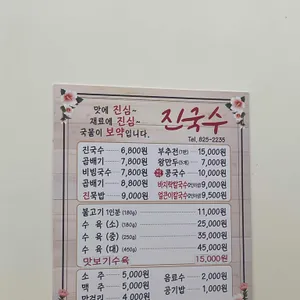 맛에 진심~
재료에 진심~
국물이 보약입니다.
진국수
Tel. 825-2235
진국수 6,800원
곱배기 7,800원
비빔국수 6,800원
곱배기 8,800원
진묵밥 9,000원
부추전(1판) 15,000원
왕만두(5개) 7,000원
콩국수 10,000원
바지락칼국수 9,500원
얼큰이칼국수 9,500원
불고기 1인분 (180g) 11,000원
수 육 (소) (180g) 25,000원
수 육 (중) (250g) 35,000원
수 육 (대) (450g) 45,000원
맛보기수육 15,000원
소 주 5,000원
맥 주 5,000원
막걸리 4,000원
음료수 2,000원
공기밥 1,000원